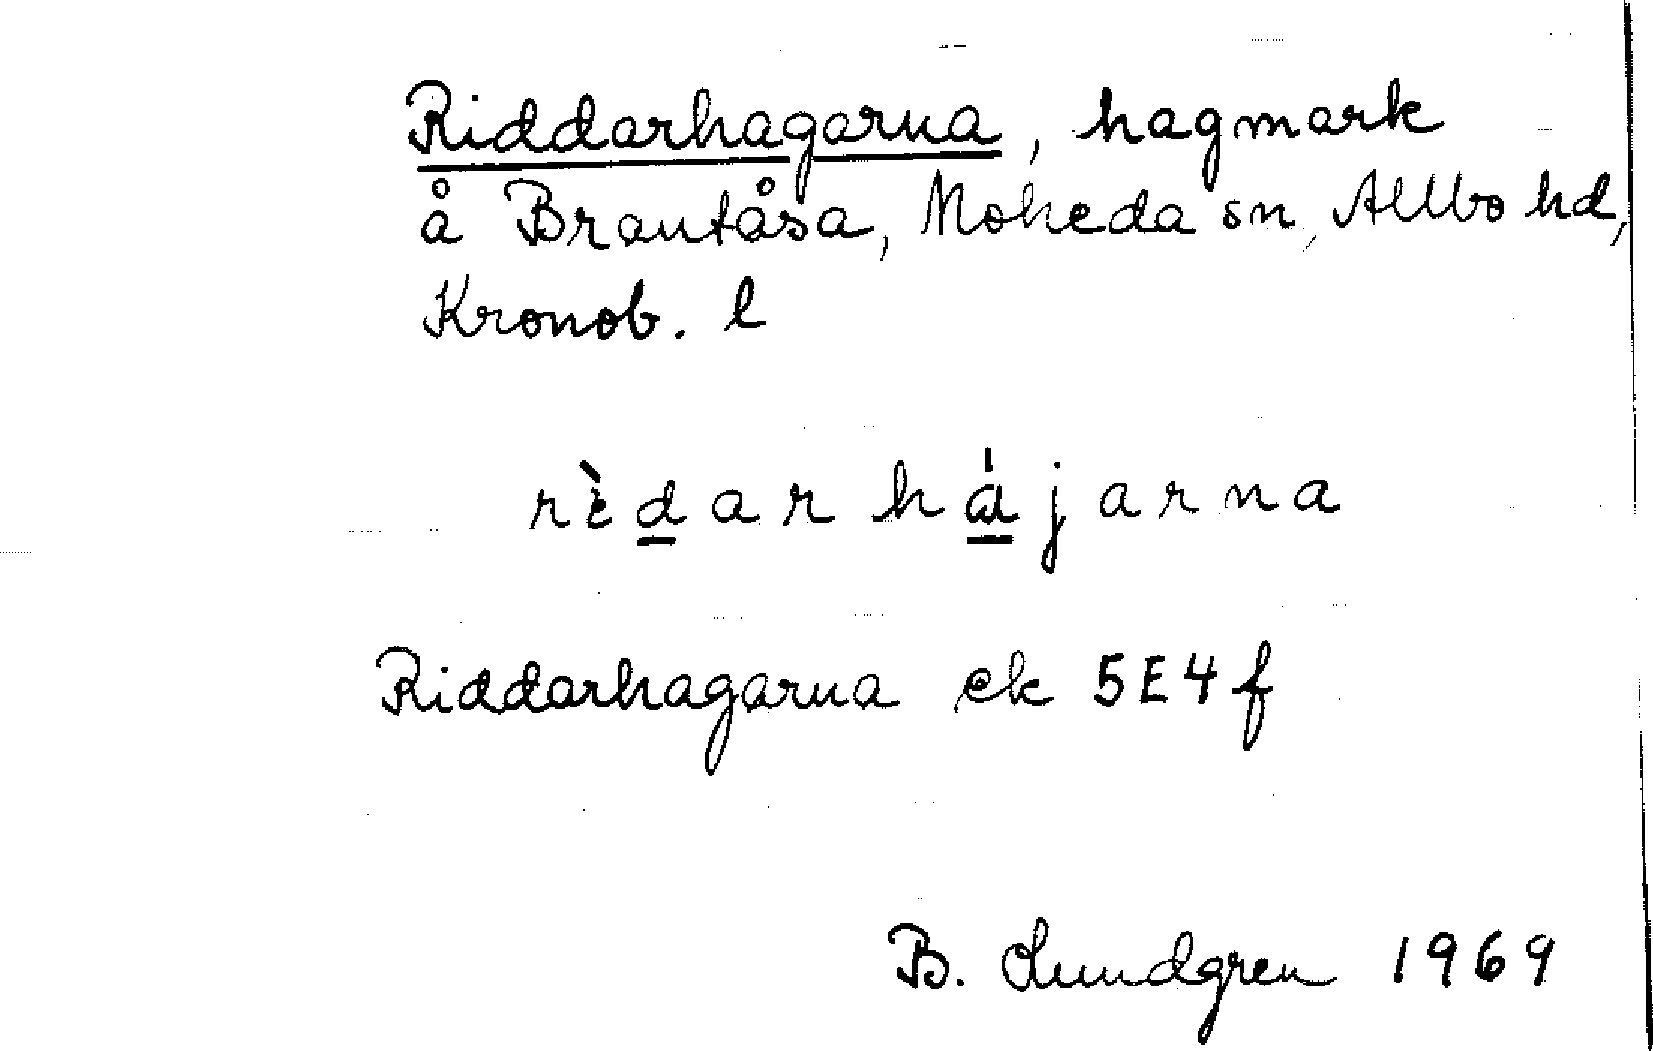 Riddarhagarna, hagmark
å Brantåsa, Moheda sn, Allbo hd,
Kronob. l
rèdarhájarna
Riddarhagarna ek 5E4f
B. Lundgren 1969